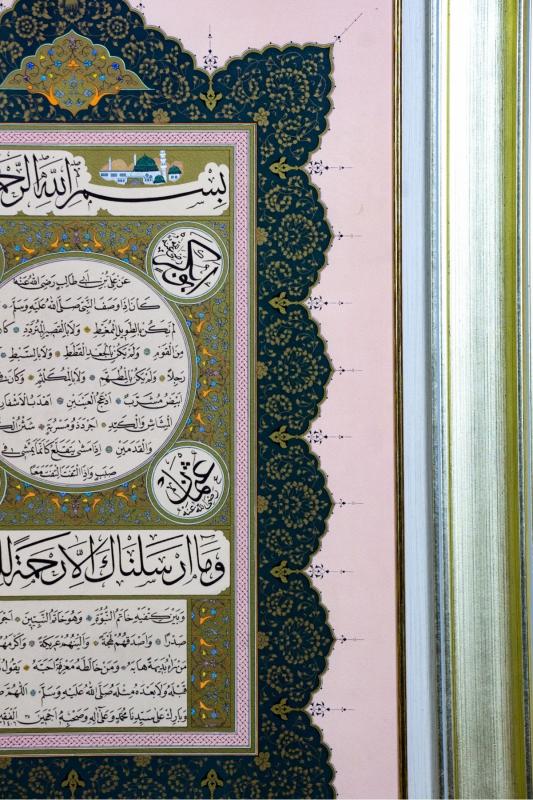 بسم الله الرحم
ابو بكر
عن علي بن ابي طالب رضي الله عنه
كان اذا وصف النبي صلى الله عليه وسلم
لم يكن بالطويل الممغط ولا بالقصير المتردد
من القوم ولم يكن بالجعد القطط ولا بالسبط
رجلا ولم يكن بالمطهم ولا بالمكلثم وكان
ابيض مشرب ادعج العينين اهدب الاشفار
المشاش والكتد اجرد ذو مسربة شثن
والقدمين اذا مشى يتقلع كانما يمشي في
صبب واذا التفت التفت معا
عثمان رضي الله عنه
وما ارسلناك الا رحمة لل
وبين كتفيه خاتم النبوة وهو خاتم النبيين اجود
صدرا واصدقهم لهجة والينهم عريكة واكرمهم
من رآه بديهة هابه ومن خالطه معرفة احبه يقول
قبله ولا بعده مثله صلى الله عليه وسلم اللهم
وبارك على سيدنا محمد وعلى اله وصحبه اجمعين